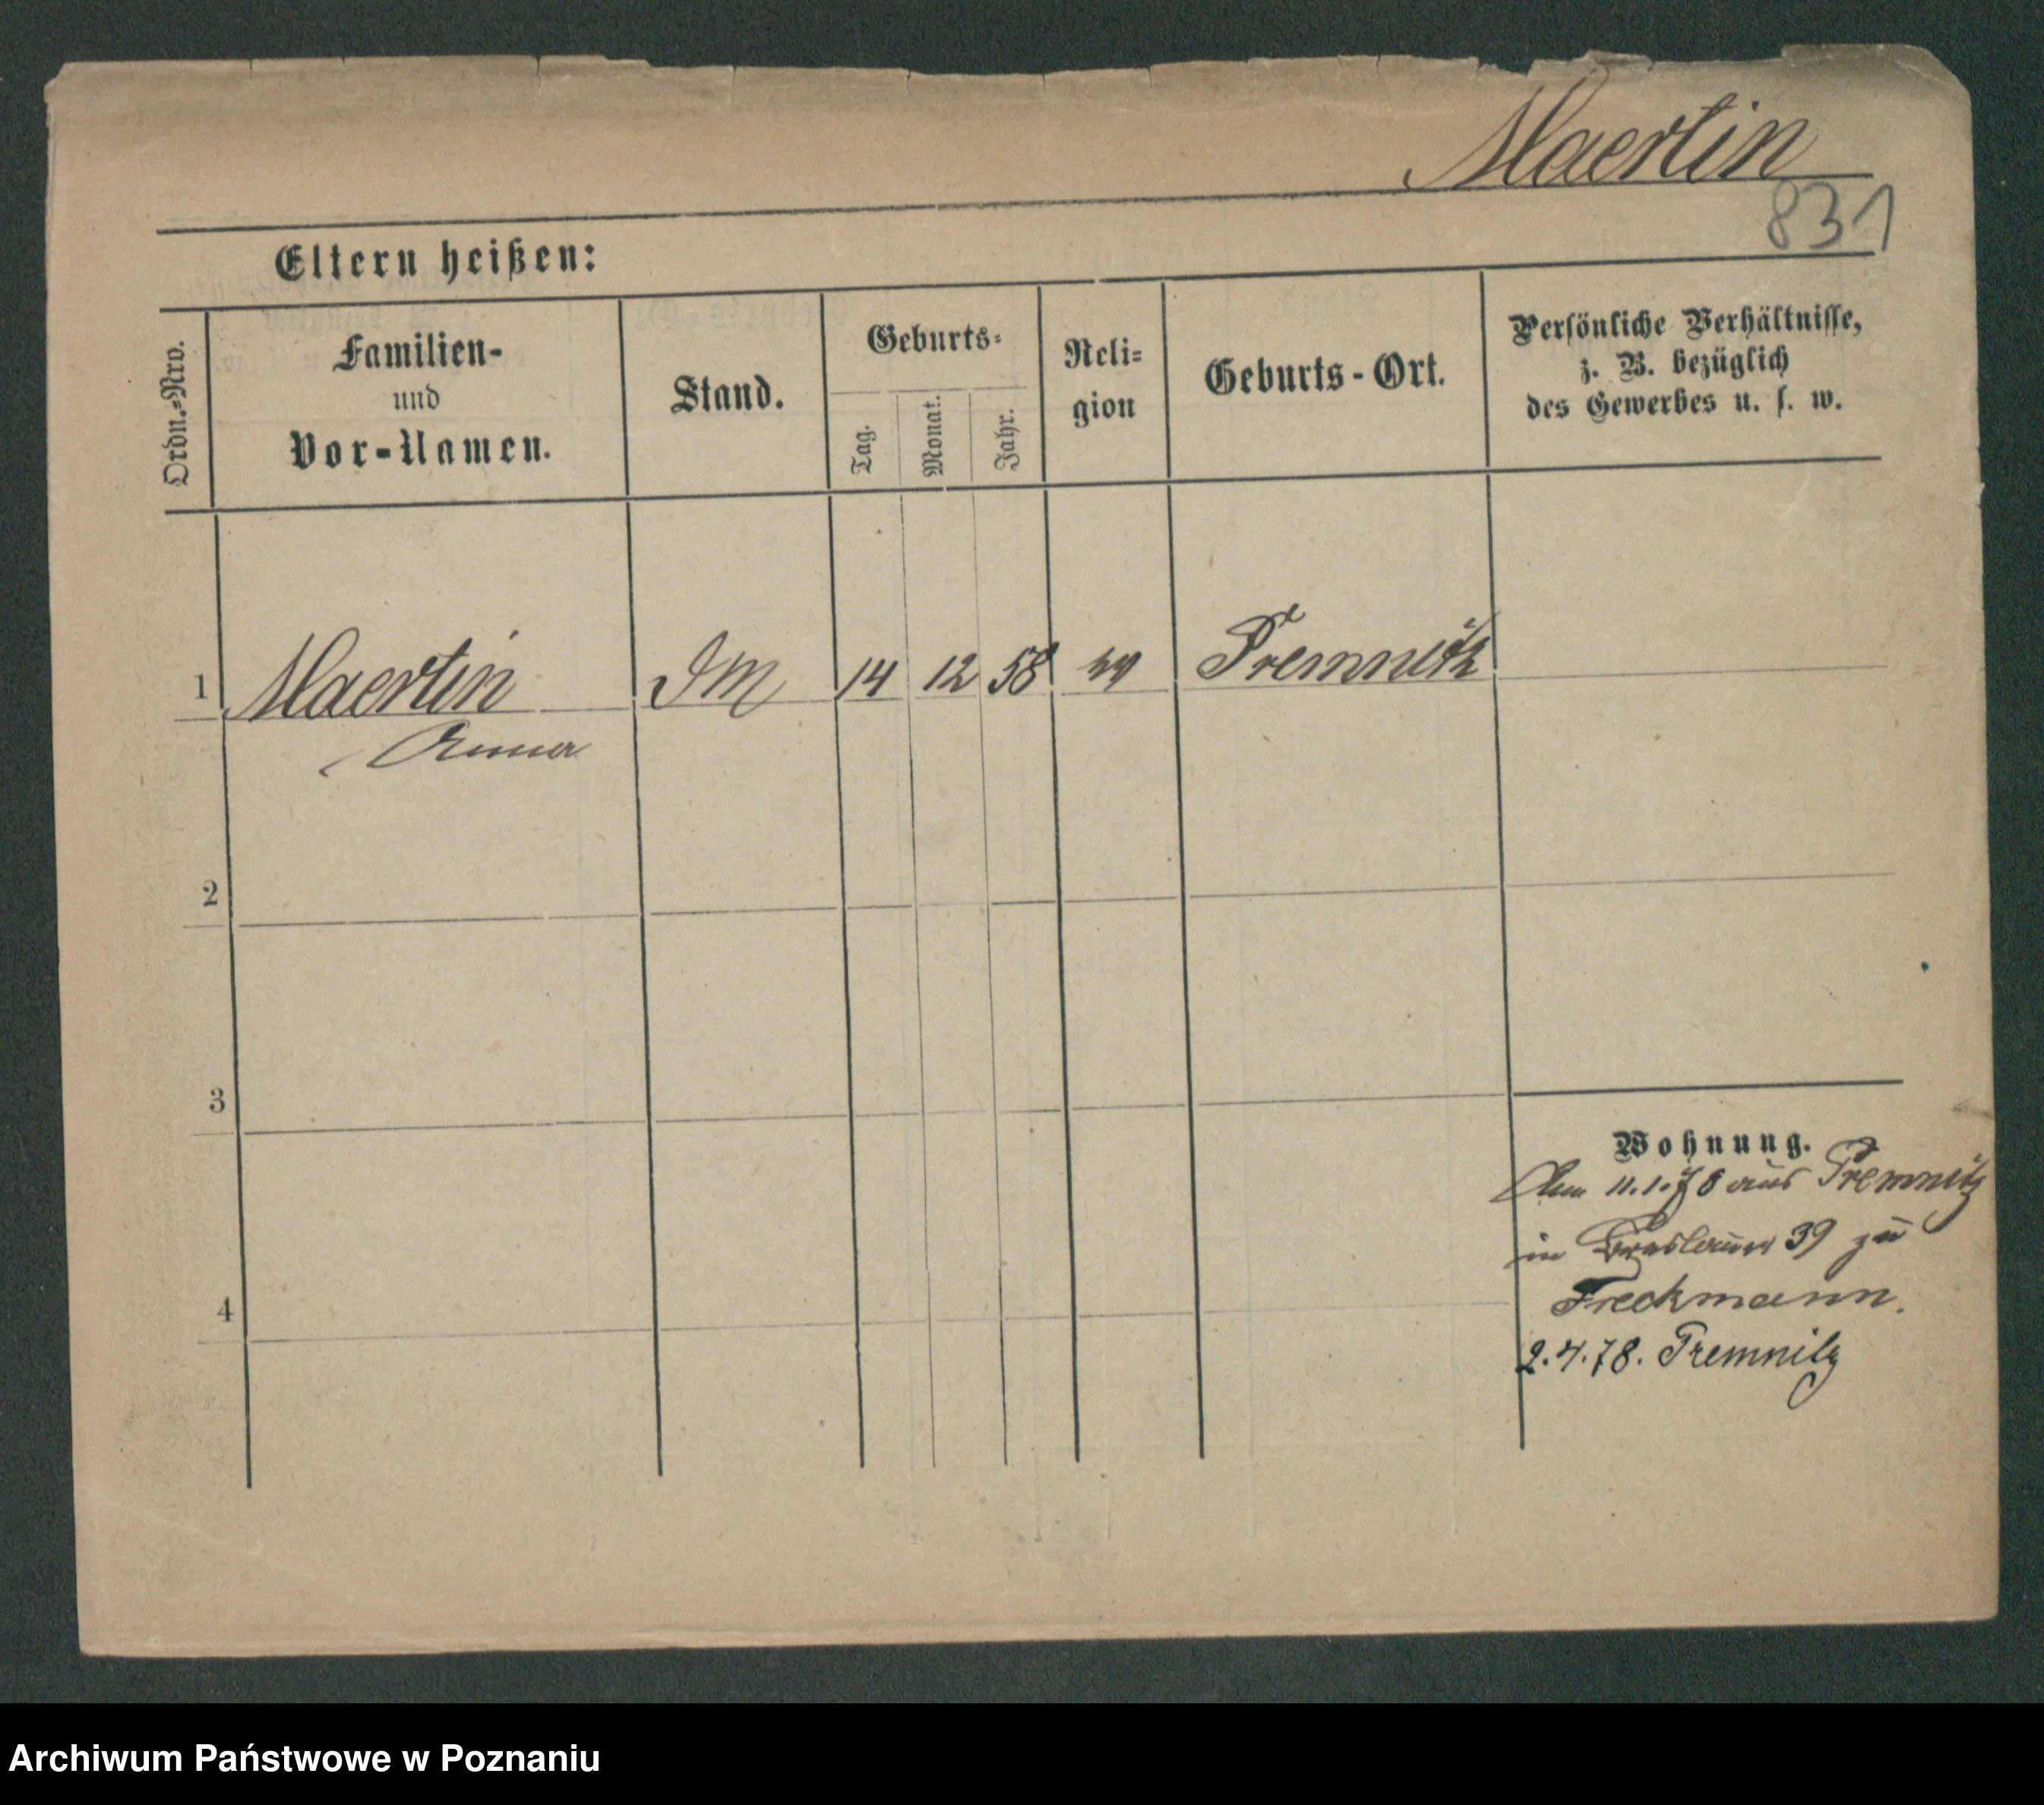 Maertin
831
Eltern heißen:
Ordn.-Nro.
Familien-
und
Vor-Namen.
Stand.
Geburts-
Tag.
Monat.
Jahr.
Reli-
gion
Geburts-Ort.
Persönliche Verhältnisse,
z. B. bezüglich
des Gewerbes u. s. w.
1 Maertin 14 12 58 ev Premnitz
Anna
2
3
4
Wohnung.
11.1.78 aus Premnitz
in Breslauer 39 zu
Freckmann.
2.4.78. Premnitz
Archiwum Państwowe w Poznaniu